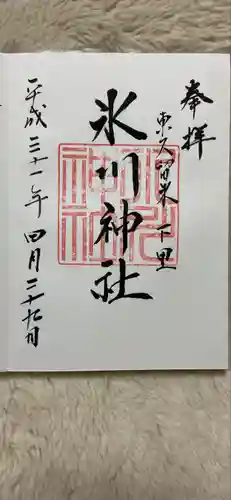 奉拝
東久留米下里
氷川神社
平成三十一年四月二十九日